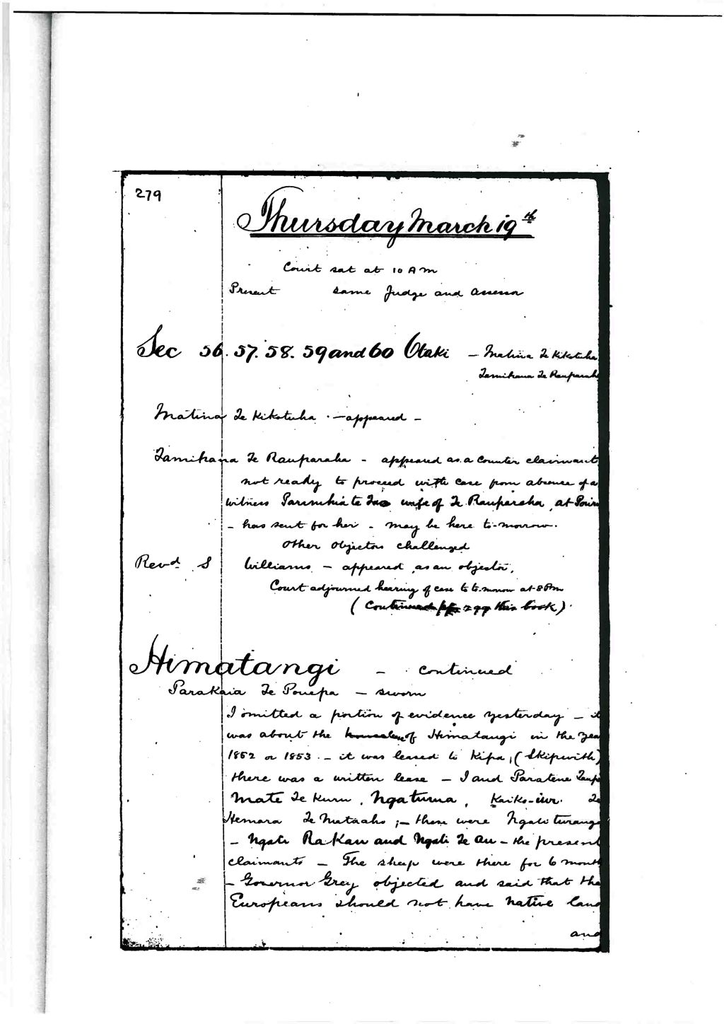 279
Thursday March 19th
Court sat at 10 A m
Present same Judge and Assessor
Sec 56. 57. 58. 59 and 60 Otaki — Matina Te Kikotuha
Tamihana Te Rauparaha
Matina Te Kikotuha — appeared —
Tamihana Te Rauparaha - appeared as a Counter claimant
not ready to proceed with case from absence of a
witness wife of Te Rauparaha, at
- has sent for her - may be here to-morrow.
Other Objectors challenged
Revd. S Williams — appeared as an objector,
Court adjourned hearing of case to to-morrow at 8 Am
(Continued 299 this book).
Himatangi — continued
Parakaia Te Pouepa — sworn
I omitted a portion of evidence yesterday — it
was about the of Himatangi in the yea
1852 or 1853. — it was leased to Kipa, (Skipwith)
there was a written lease — I and Paratene Taup
Mate Te Kuru, Ngaturua, Te
Hemara Te ;— these were Ngati turang
— Ngati Rakau and Ngati Te Au — the present
claimants — The sheep were there for 6 month
— Governor Grey objected and said that the
Europeans should not have native land
and